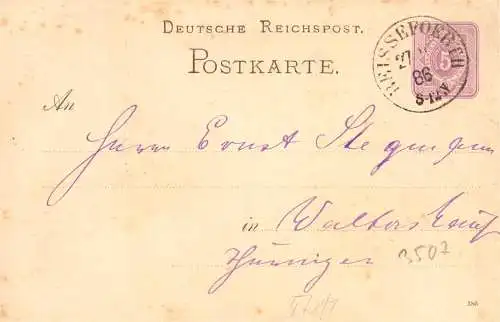 DEUTSCHE REICHSPOST.
POSTKARTE.
REISSEFOERTH
27
86
8-12V
5
An
Herrn Ernst Stegmann
in Waltershausen
Thüringen
3507
586